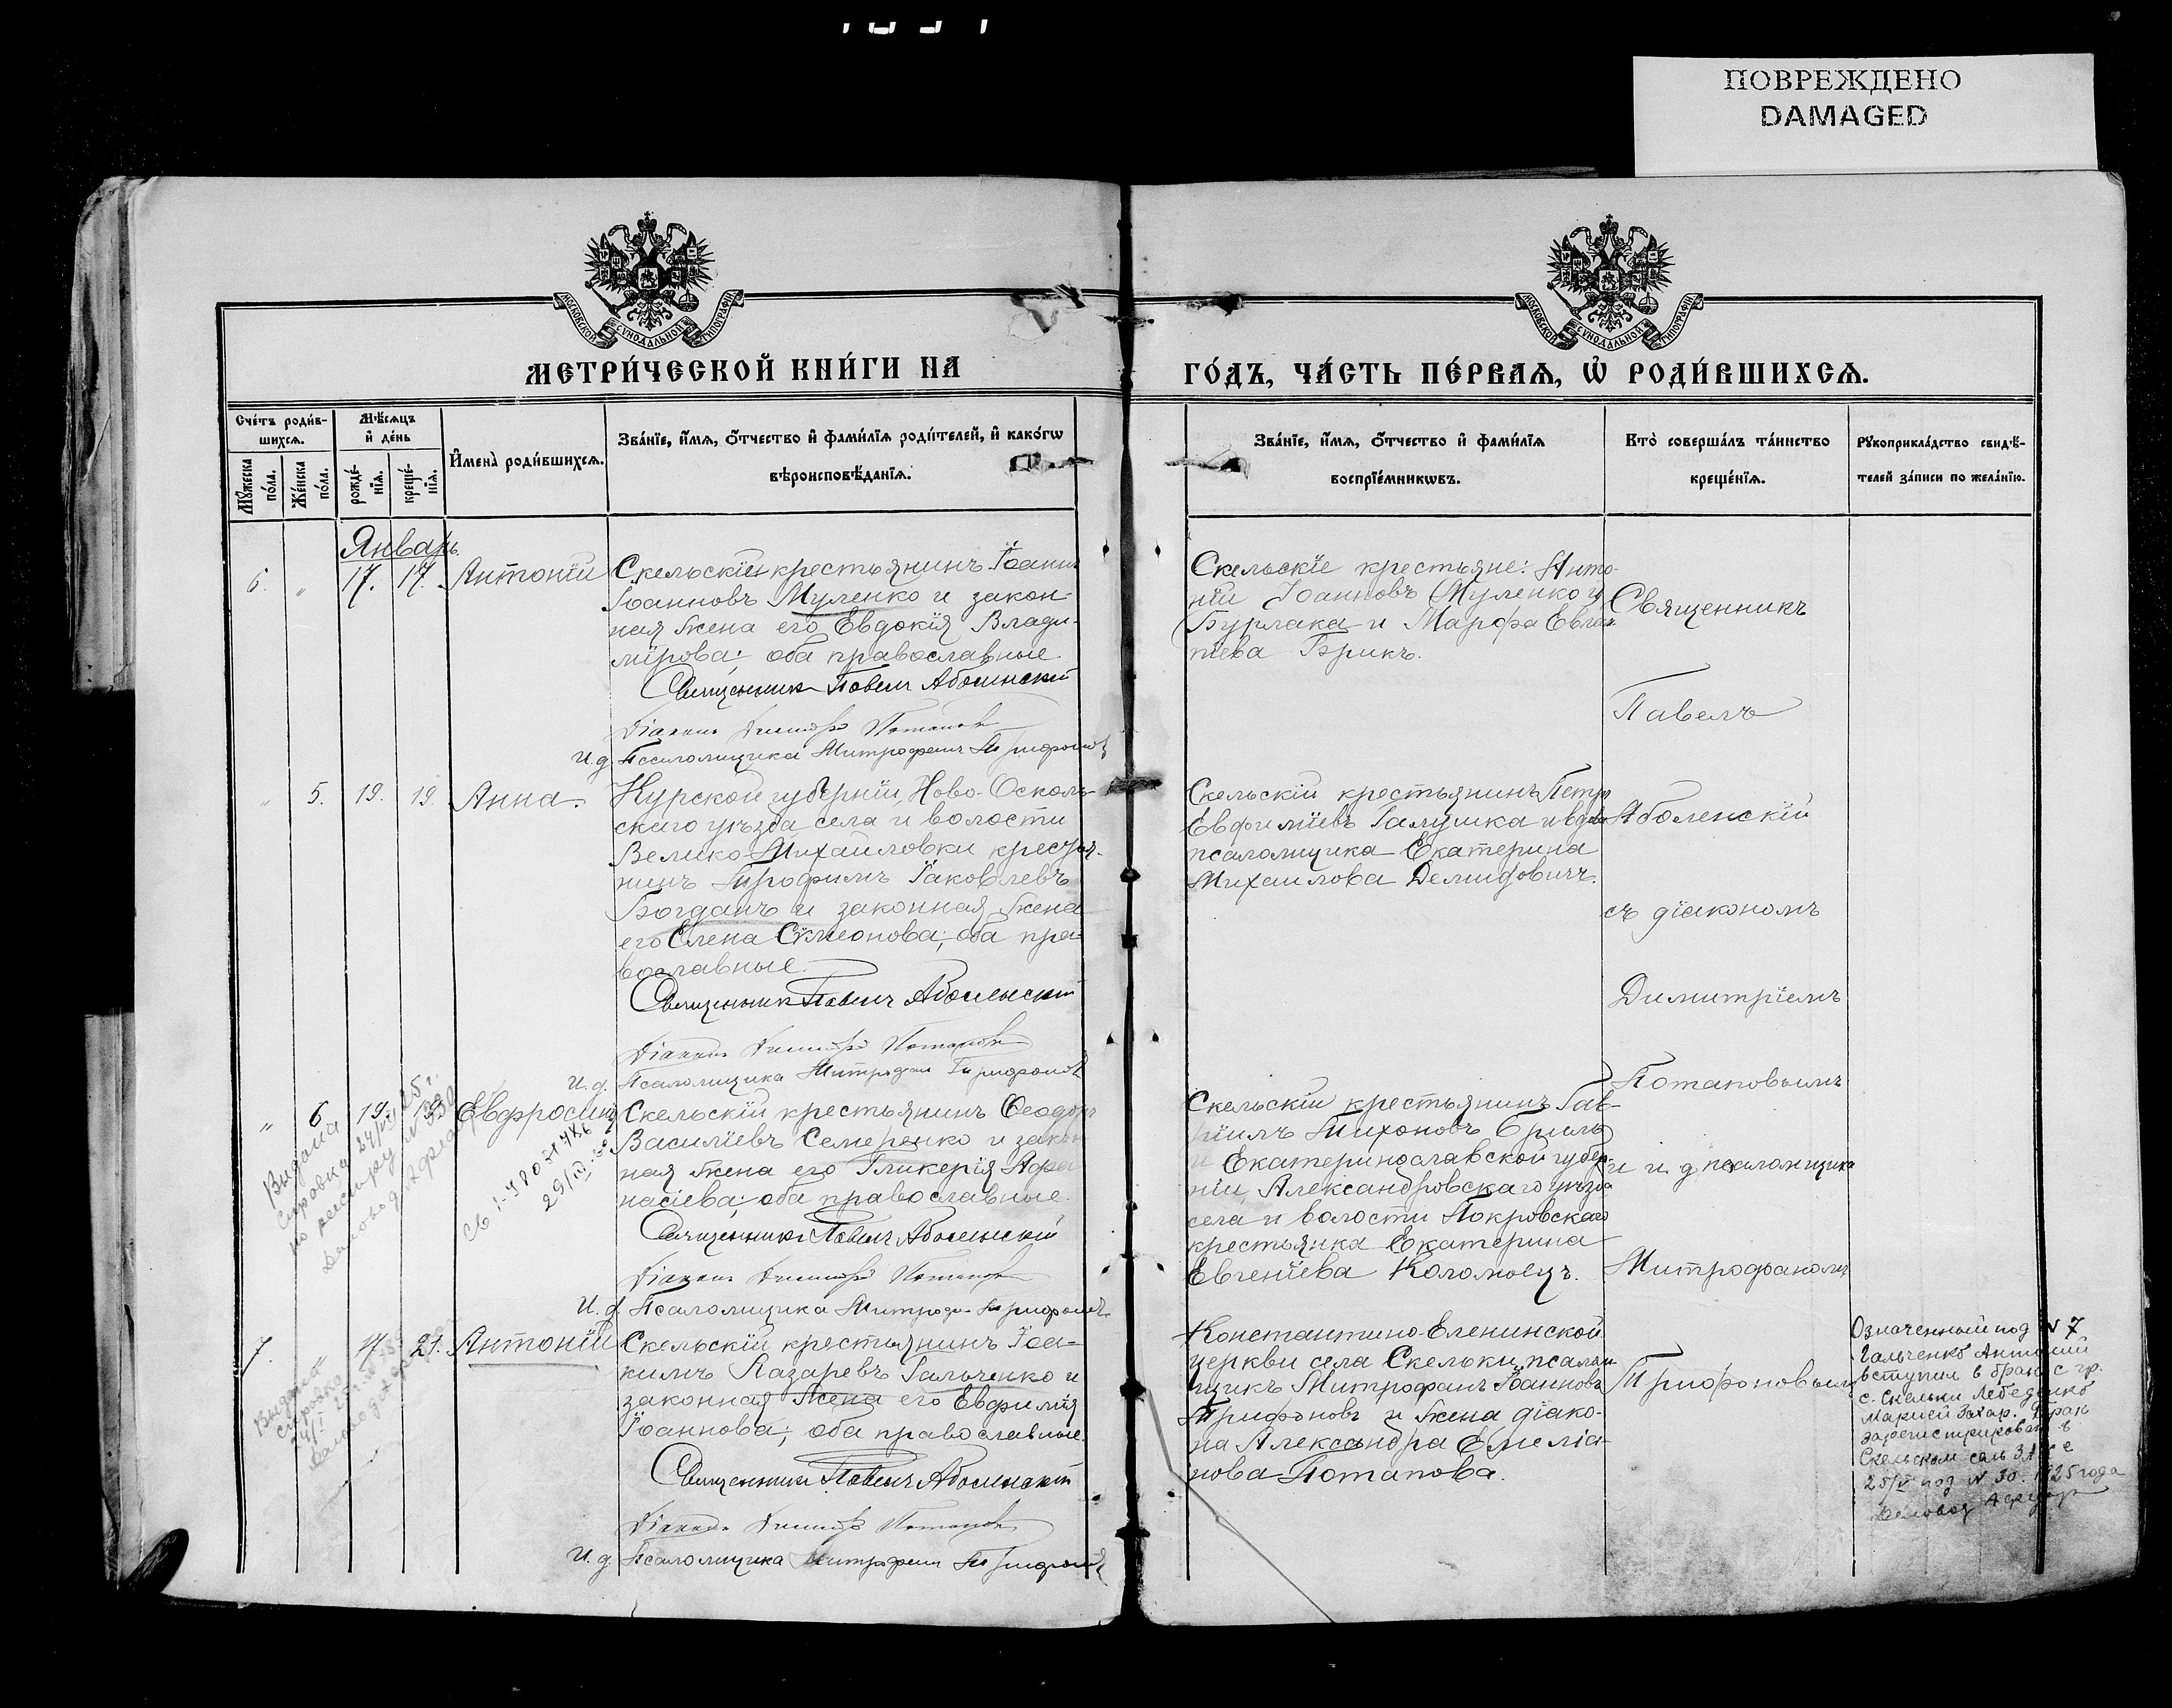 ПОВРЕЖДЕНО
DAMAGED
МОСКОВСКОЙ СУНОДАЛЬНОЙ ТИПОГРАФІИ
МОСКОВСКОЙ СУНОДАЛЬНОЙ ТИПОГРАФІИ
МЕТРИ́ЧЕСКОЙ КНИ́ГИ НА
ГО́ДЪ, ЧА́СТЬ ПЕ́РВАѦ, Ѡ҆ РОДИ́ВШИХСѦ.
Сче́тъ роди́в-
шихсѧ.
Мѣ́сѧцъ
и҆ де́нь
Мꙋ́жеска
по́ла.
Же́нска
по́ла.
рожде́-
нїѧ.
креще́-
нїѧ.
И҆мена̀ роди́вшихсѧ.
Зва́нїе, и҆́мѧ, ѻ҆́тчество и҆ фами́лїѧ роди́телей, и҆ како́гѡ
вѣроисповѣ́данїѧ.
Зва́нїе, и҆́мѧ, ѻ҆́тчество и҆ фами́лїѧ
воспрїе́мникѡвъ.
Кто̀ соверша́лъ та́инство
креще́нїѧ.
Рꙋкоприкла́дство свидѣ́-
телей за́писи по жела́нїю.
Январь.
6. " 17. 17. Антоній
Скельскій крестьянинъ Іоаннъ
Іоанновъ Муленко и закон-
ная жена его Евдокія Влади-
мірова; оба православные.
Священникъ Павелъ Аболенскій
Діаконъ Димитрій Потаповъ
И. д. Псаломщика Митрофанъ Трифоновъ
Скельскіе крестьяне: Анто-
ній Іоанновъ Муленко и
Бурлака и Марфа Евге-
ніева Брикъ.
Священникъ
Павелъ
" 5. 19. 19. Анна.
Курской губерніи, Ново-Осколь-
скаго уѣзда села и волости
Велико-Михайловки крестья-
нинъ Трофимъ Іаковлевъ
Богданъ и законная жена
его Елена Сѵмеонова; оба пра-
вославные.
Священникъ Павелъ Аболенскій
Діаконъ Димитрій Потаповъ
И. д. Псаломщика Митрофанъ Трифоновъ
Скельскій крестьянинъ Петръ
Евфиміевъ Галушка и вдова
псаломщика Екатерина
Михайлова Демидовичъ.
Аболенскій
съ діакономъ
Димитріемъ
Потаповымъ
" 6 19. 19. Евфросинія
Скельскій крестьянинъ Ѳеодоръ
Василіевъ Семеренко и закон
ная жена его Гликерія Афа
насіева; оба православные.
Священникъ Павелъ Аболенскій
Діаконъ Димитрій Потаповъ
И. д. Псаломщика Митрофанъ Трифоновъ
Скельскій крестьянинъ Гав-
ріилъ Тихоновъ
и Екатеринославской губер-
ніи, Александровскаго уѣзда
села и волости Покровскаго
крестьянка Екатерина
Евгеніева Коломоецъ.
и и. д. псаломщика
Митрофаномъ
Выдана
справка 24/VI 25 г.
по реестру №
Деловод
29/IV
7. " 21. Антоній
Скельскій крестьянинъ Іоа-
кимъ Лазаревъ Гальченко и
законная жена его Евфимія
Іоаннова; оба православные.
Священникъ Павелъ Аболенскій
Діаконъ Димитрій Потаповъ
И. д. Псаломщика Митрофанъ Трифоновъ
Константино-Еленинской
церкви села Скельки псалом-
щикъ Митрофанъ Іоанновъ
Трифоновъ и жена діако-
на Александра Емеліа-
нова Потапова.
Трифоновымъ
Означенный под № 7
Гальченко Антоний
вступил в брак с гр.
с. Скельки Лебеденко
Марией Захар. Брак
зарегистрирован в
Скельском сель ЗАГСе
25/V под № 30. 1925 года
Деловод
Выдана
справка
Деловод